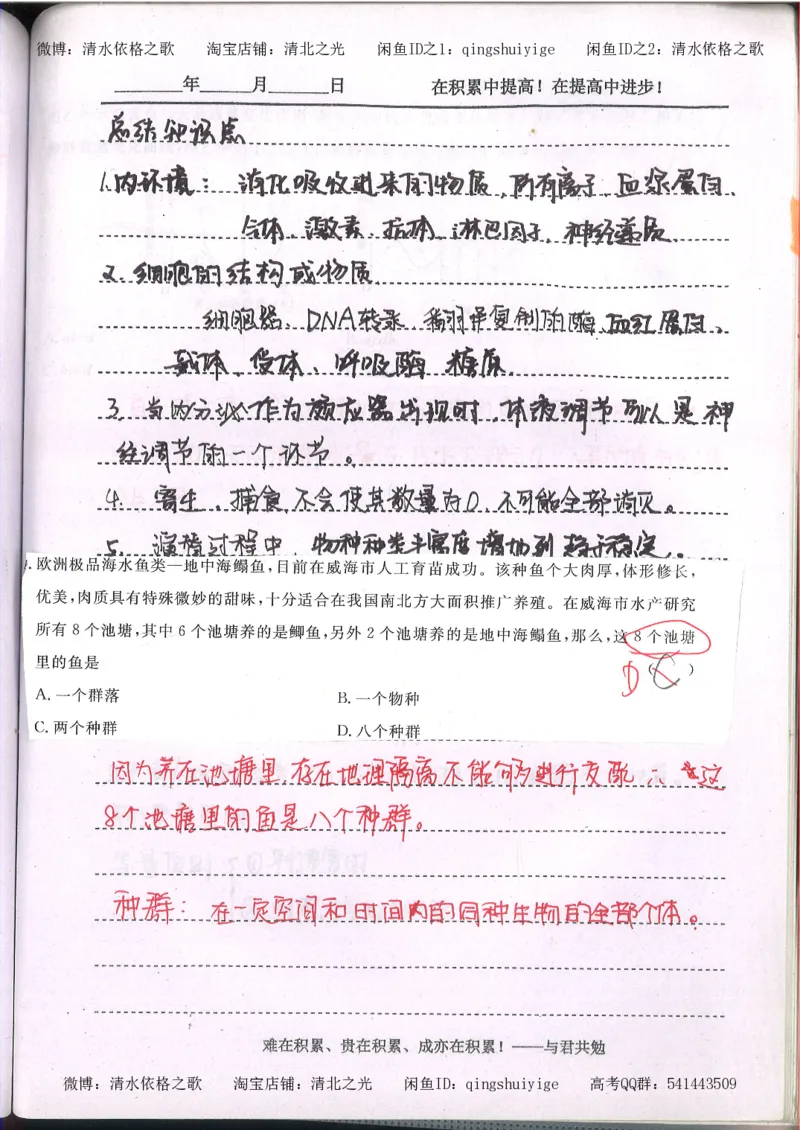 微博：清水依格之歌 淘宝店铺：清北之光 闲鱼ID之1：qingshuiyige 闲鱼ID之2：清水依格之歌
年 月 日 在积累中提高！在提高中进步！
总结知识点
1.内环境：消化吸收进来的物质、所有离子、血浆蛋白、
气体、激素、抗体、淋巴因子、神经递质
2.细胞的结构或物质
细胞器、DNA转录、翻译复制的酶、血红蛋白、
载体、受体、呼吸酶 糖原.
3.当内分泌作为效应器出现时,体液调节可以是神
经调节的一个环节。
4.寄生、捕食不会使其数量为0,不可能全部消灭。
5.演替过程中,物种种类丰富度增加到趋于稳定.
.欧洲极品海水鱼类—地中海鳎鱼,目前在威海市人工育苗成功。该种鱼个大肉厚,体形修长,
优美,肉质具有特殊微妙的甜味,十分适合在我国南北方大面积推广养殖。在威海市水产研究
所有8个池塘,其中6个池塘养的是鲫鱼,另外2个池塘养的是地中海鳎鱼,那么,这8个池塘
里的鱼是 D（C）
A.一个群落 B.一个物种
C.两个种群 D.八个种群
因为养在池塘里,存在地理隔离不能够进行交配 ∴ 这
8个池塘里的鱼是八个种群。
种群：在一定空间和时间内的同种生物的全部个体。
难在积累、贵在积累、成亦在积累！——与君共勉
微博：清水依格之歌 淘宝店铺：清北之光 闲鱼ID：qingshuiyige 高考QQ群：541443509